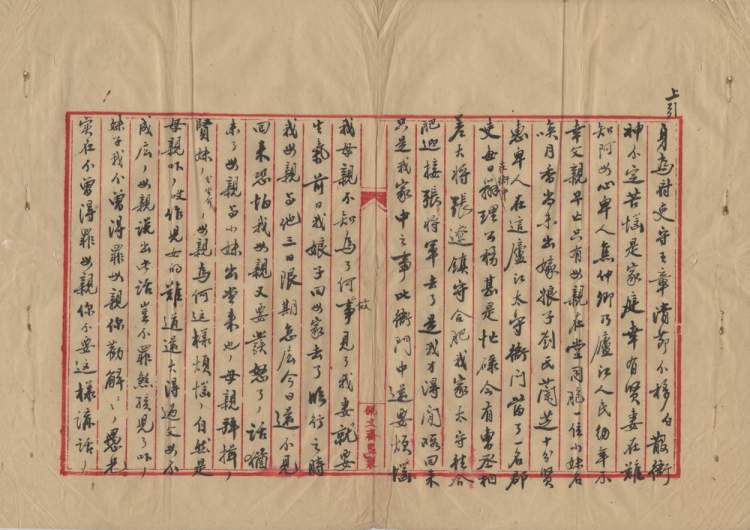 上引
身為府吏守王章 清節不移白 散衙
神不定苦惱是家庭 幸有賢妻在 難
知阿母心卑人焦仲卿乃廬江人氏幼年不
幸父親早亡只有母親在堂同胞一位小妹名
喚月香尚未出嫁娘子劉氏蘭芝十分賢
惠卑人在這廬江太守衙門當了一名郡
吏每日在衙中辦理公務甚是忙碌今有曹丞相
差大將張遼鎮守合肥我家太守往合
肥迎接張將軍去了是我才得閒暇回來
只是我家中之事比衙門中還要煩惱
我母親不知為了何事故見了我妻就要
生氣前日我娘子回母家去了臨行之時
我母親与他三日限期怎広今日還不見
回来恐怕我母親又要發怒了、話猶
未了母親与小妹出堂来也、母親拜揖、
賢妹、母親為何這樣煩惱、自然是
母親吓、作兒女的難道還大得過父母不
成広、母親説出此話豈不罪煞孩兒了吓、
妹子我不曾得罪母親你勸解、愚兄
实在不曾得罪母親你不要這樣講話、